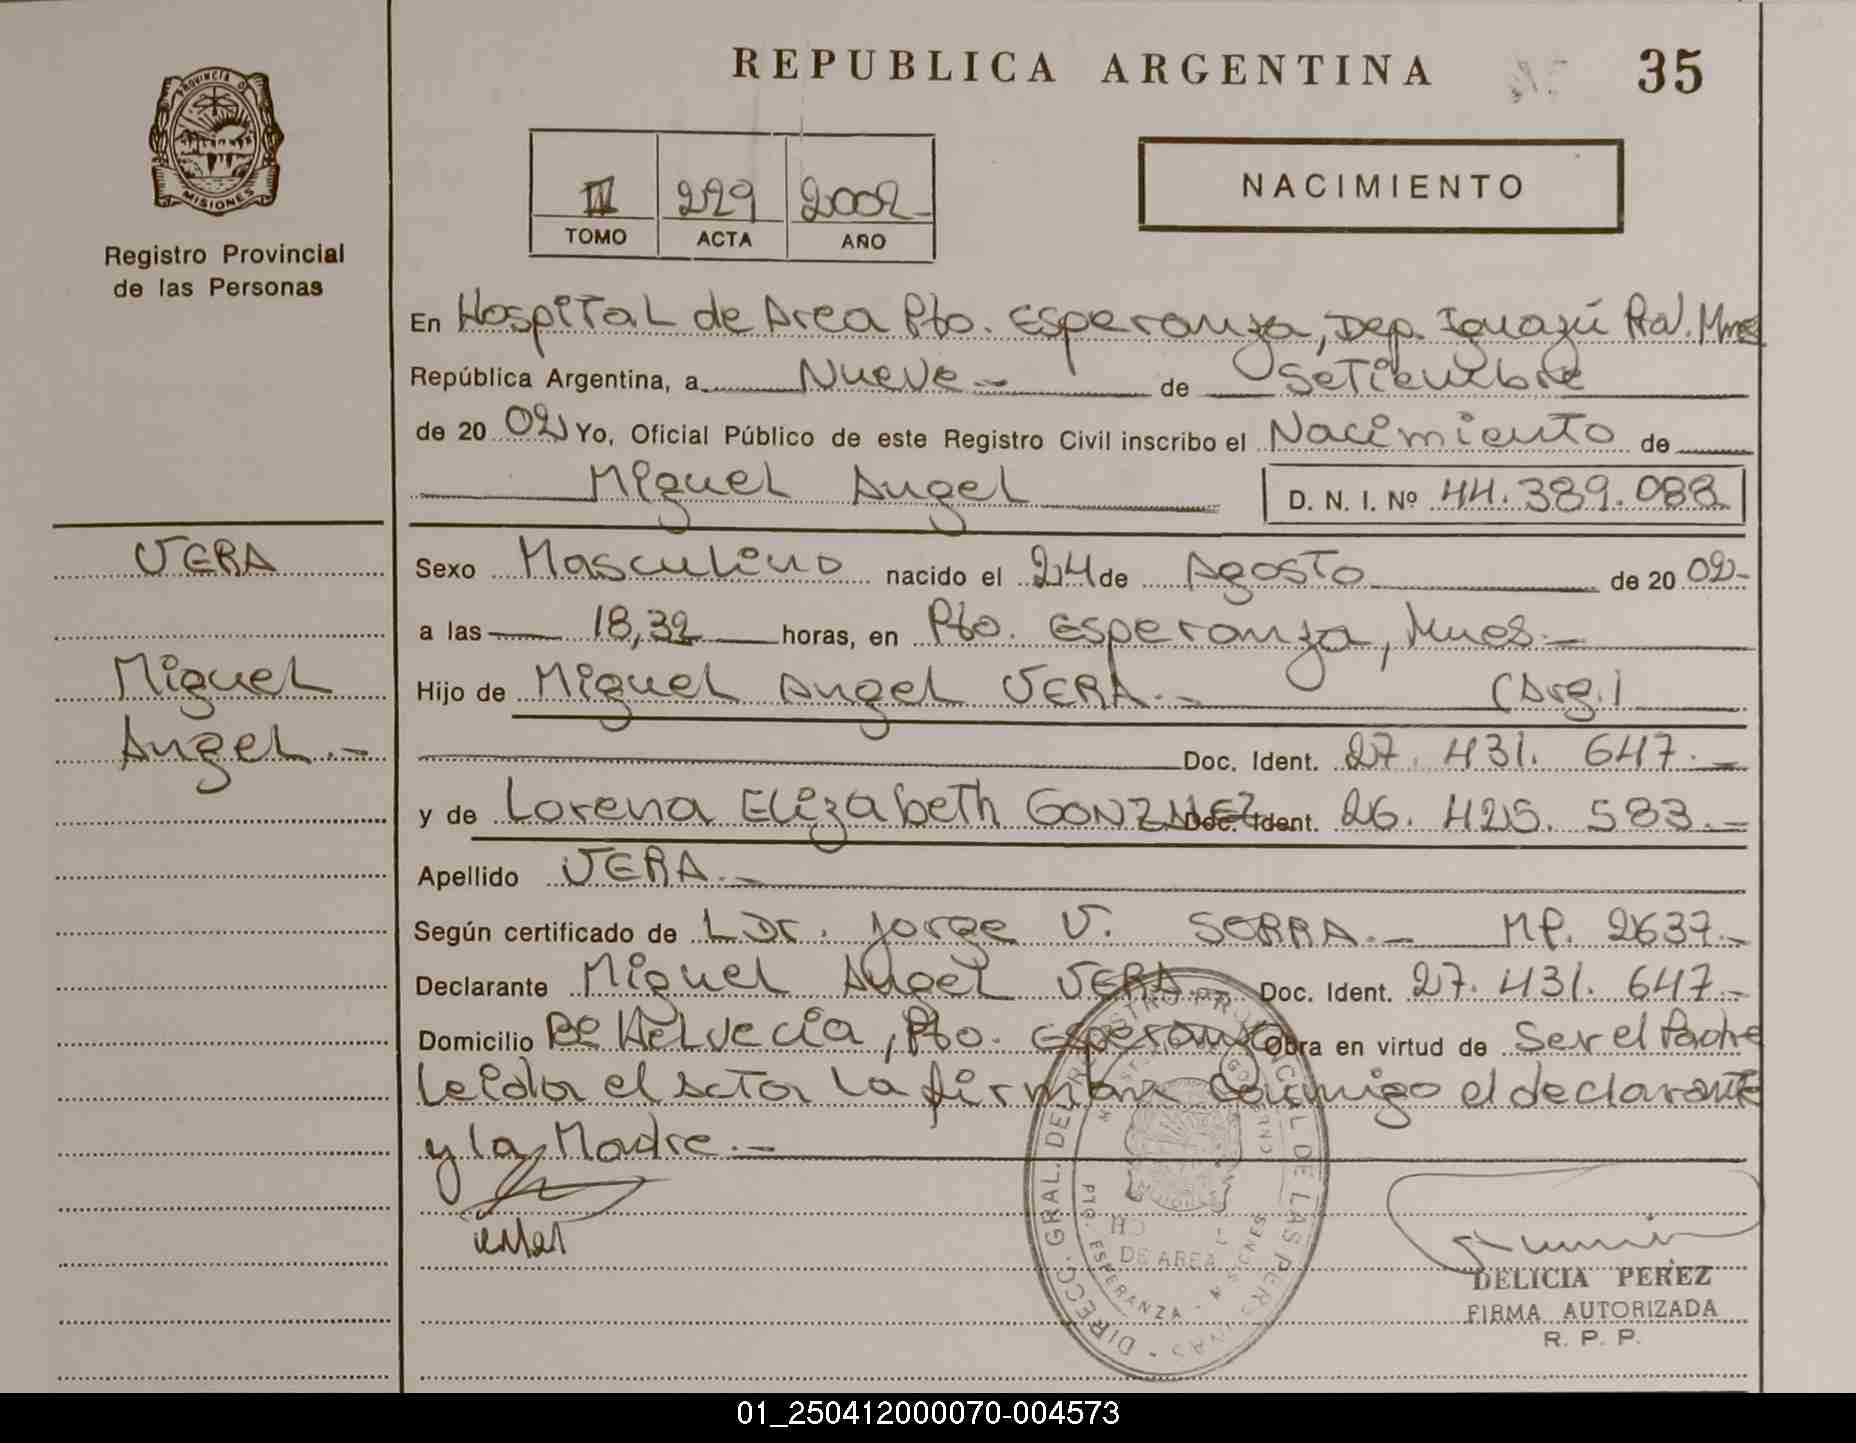 REPUBLICA ARGENTINA 35
PROVINCIA DE
MISIONES
Registro Provincial
de las Personas
229 2002
TOMO ACTA AÑO
NACIMIENTO
En Hospital de Area Pto. Esperanza, Dep. Iguazú
República Argentina, a Nueve.- de Setiembre
de 2002 Yo, Oficial Público de este Registro Civil inscribo el Nacimiento de
Miguel Angel D. N. I. Nº 44.389.088
VERA
Miguel
Angel.-
Sexo Masculino nacido el 24 de Agosto de 2002-
a las 18,32 horas, en Pto. Esperanza, Mnes.-
Hijo de Miguel Angel VERA.- (Arg.)
Doc. Ident. 27. 431. 647.-
y de Lorena Elizabeth GONZALEZ Doc. Ident. 26. 425. 583.-
Apellido VERA.-
Según certificado de Dr. Jorge V. SERRA.- MP. 2637.-
Declarante Miguel Angel VERA.- Doc. Ident. 27. 431. 647.-
Domicilio Bº Helvecia, Pto. Esperanza Obra en virtud de Ser el Padre
Leida el acta la firman conmigo el declarante
y la Madre.-
DIRECC. GRAL. DEL REGISTRO PROVINCIAL DE LAS PERSONAS
DE AREA
PTO. ESPERANZA - MISIONES
DELICIA PEREZ
FIRMA AUTORIZADA
R. P. P.
01_250412000070-004573